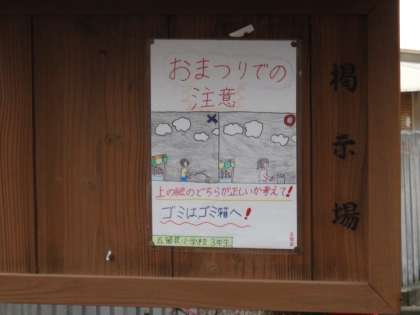 おまつりでの
注意
上の絵のどちらが正しいか考えて!
ゴミはゴミ箱へ!
小学校 3年生
掲示場